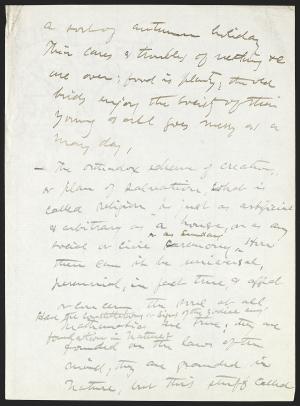 a sort of autumn holiday
Their cares & troubles of nesting &c
are over; food is plenty; the old
birds enjoy the society of their
young & all goes merry as a
May day.
— The orthodox scheme of creation,
or plan of salvation, what is
called religion is just as artificial
& arbitrary as a house, or as any
or as Sunday
social or civic ceremony. How
then can it be universal,
perennial, in fact true, & affect
or concern the soul at all
Has the constitution or laws of the
Mathematics are true; they are
foundation in Nature?
founded on the laws of the
mind; they are grounded in
Nature, but this stuff called